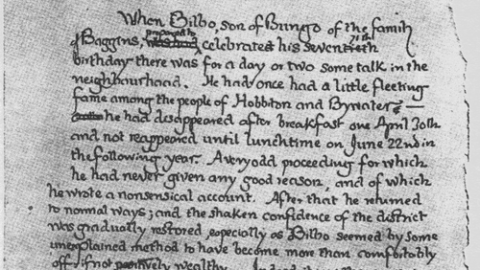 When Bilbo, son of Bungo of the family
of Baggins, prepared to celebrate his seventieth
birthday there was for a day or two some talk in the
neighbourhood. He had once had a little fleeting
fame among the people of Hobbiton and Bywater —
he had disappeared after breakfast one April 30th
and not reappeared until lunchtime on June 22nd in
the following year. A very odd proceeding for which
he had never given any good reason, and of which
he wrote a nonsensical account. After that he returned
to normal ways; and the shaken confidence of the district
was gradually restored, especially as Bilbo seemed by some
unexplained method to have become more than comfortably
off, if not positively wealthy. Indeed